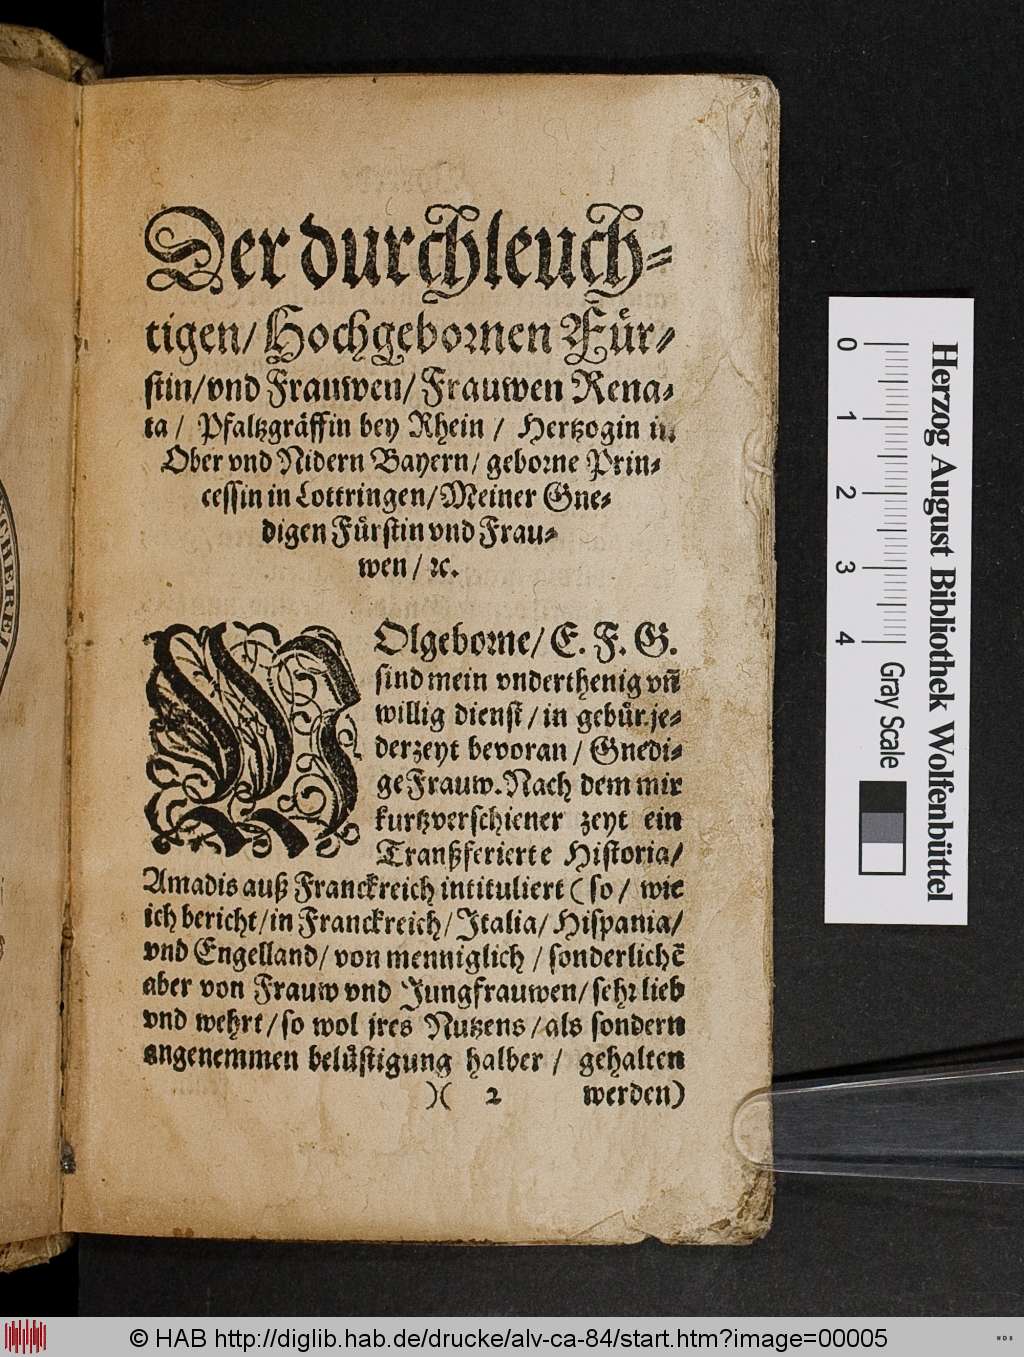 Der durchleuch-
tigen/ Hochgebornen Für-
stin/ vnd Frauwen/ Frauwen Rena-
ta/ Pfaltzgräffin bey Rhein/ Hertzogin in
Ober vnd Nidern Bayern/ geborne Prin-
cessin in Lottringen/ Meiner Gne-
digen Fürstin vnd Frau-
wen/ ꝛc.
WOlgeborne/ E. F. G.
sind mein vnderthenig vn̄
willig dienst/ in gebür je-
derzeyt bevoran/ Gnedi-
ge Frauw. Nach dem mir
kurtzverschiener zeyt ein
Tranßferierte Historia/
Amadis auß Franckreich intituliert (so/ wie
ich bericht/ in Franckreich/ Italia/ Hispania/
vnd Engelland/ von menniglich/ sonderlichē
aber von Frauw vnd Jungfrauwen/ sehr lieb
vnd wehrt/ so wol jres Nutzens/ als sondern
angenemmen belüstigung halber/ gehalten
)( 2 werden)
0 1 2 3 4
Gray Scale
Herzog August Bibliothek Wolfenbüttel
© HAB http://diglib.hab.de/drucke/alv-ca-84/start.htm?image=00005